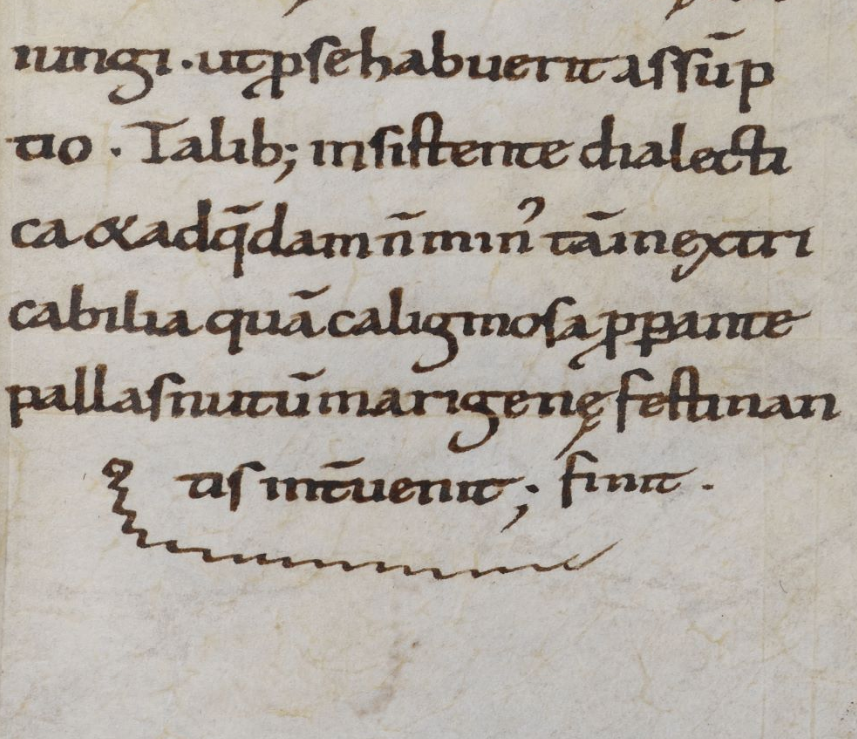 iungi · ut ꝓ se habuerit assūp
tio · Talib; insistente dialecti
ca & ad q̄dam n̄ min᾿ tām inextri
cabilia quā caliginosa ꝓꝑante
pallas nutū marigenę festinan
tis int̄uenit ; finit .